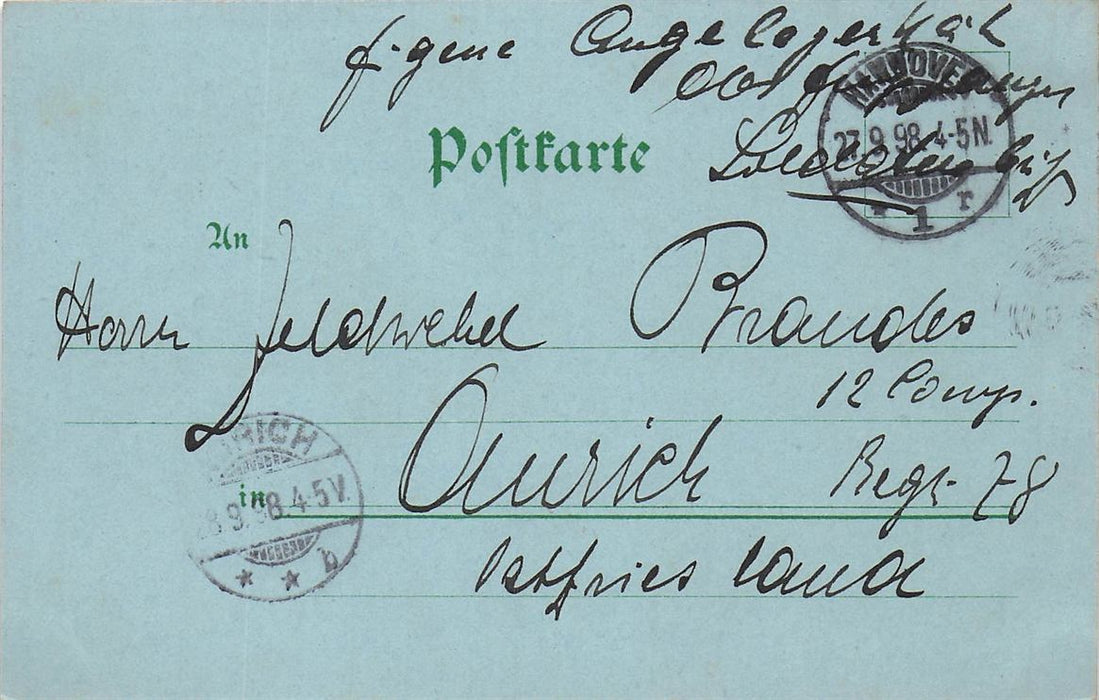 Eigene Angelegenheit
des
Soldatenbrief
HANNOVER
27.9.98.4-5N.
* 1 r
Postkarte
An
Herrn Feldwebel Brandes
12 Comp.
AURICH
in Aurich Regt. 78
28.9.98.4-5V.
* * b
Ostfriesland